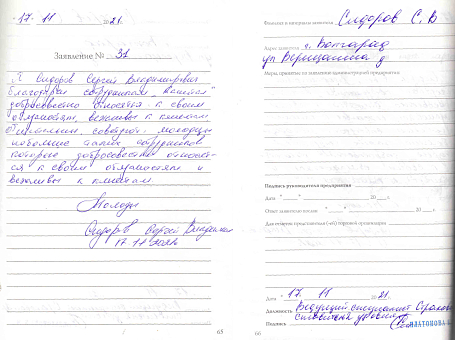 "17" 11 2021.
Заявление № 31
Я Сидоров Сергей Владимирович
благодарю сотрудников
добросовестно относятся к своим
обязанностям, вежливы к клиентам
молодцы
побольше таких сотрудников
которые добросовестно относят-
ся к своим обязанностям и
вежливы к клиентам.
Молодцы
Сидоров Сергей
17.11.
65
Фамилия и инициалы заявителя Сидоров С. В
Адрес заявителя г. Волгоград
ул Верещагина
Меры, принятые по заявлению администрацией предприятия:
Подпись руководителя предприятия
Дата " " 20 г.
Ответ заявителю послан " " 20 г.
Для отметок представителя торговой организации
Дата "17" 11 2021.
Должность Ведущий специалист
Подпись
66